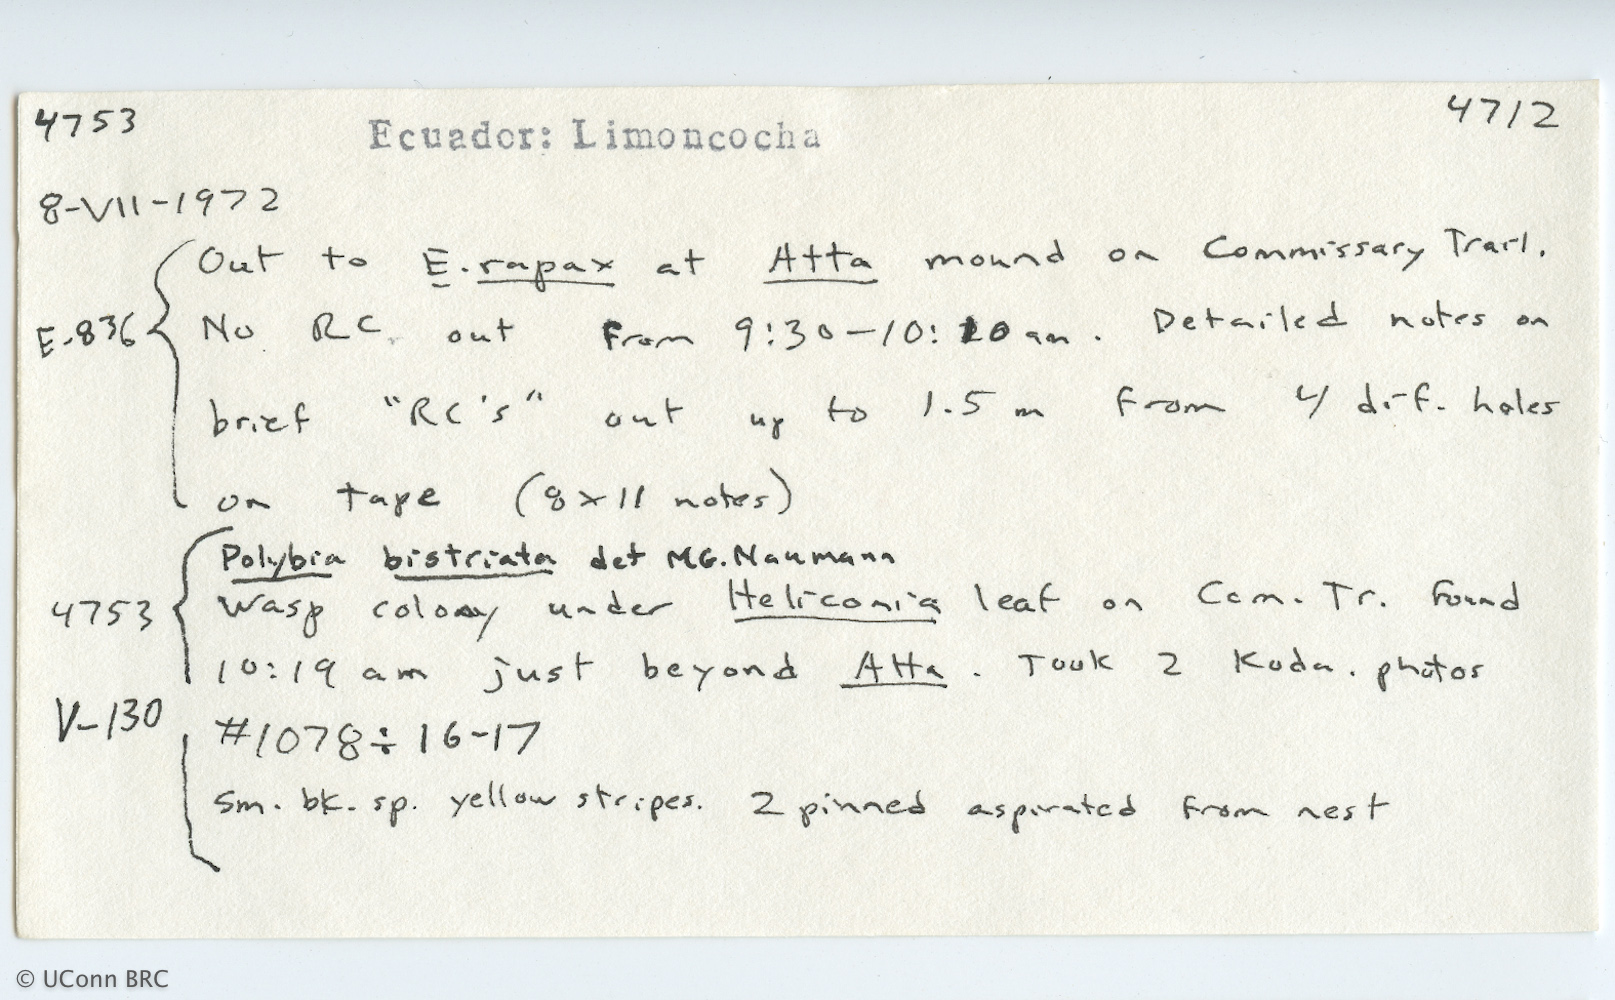 4753
Ecuador: Limoncocha
4712
8-VII-1972
Out to E. rapax at Atta mound on Commissary Trail.
E-836
No RC out from 9:30-10:20 am. Detailed notes on
brief "RC's" out up to 1.5 m from 4 dif. holes
on tape (8x11 notes)
Polybia bistriata det MG. Naumann
4753
Wasp colony under Heliconia leaf on Com. Tr. found
10:19 am just beyond Atta. Took 2 Koda. photos
V-130
#1078÷16-17
Sm. bk. sp. yellow stripes. 2 pinned aspirated from nest
© UConn BRC